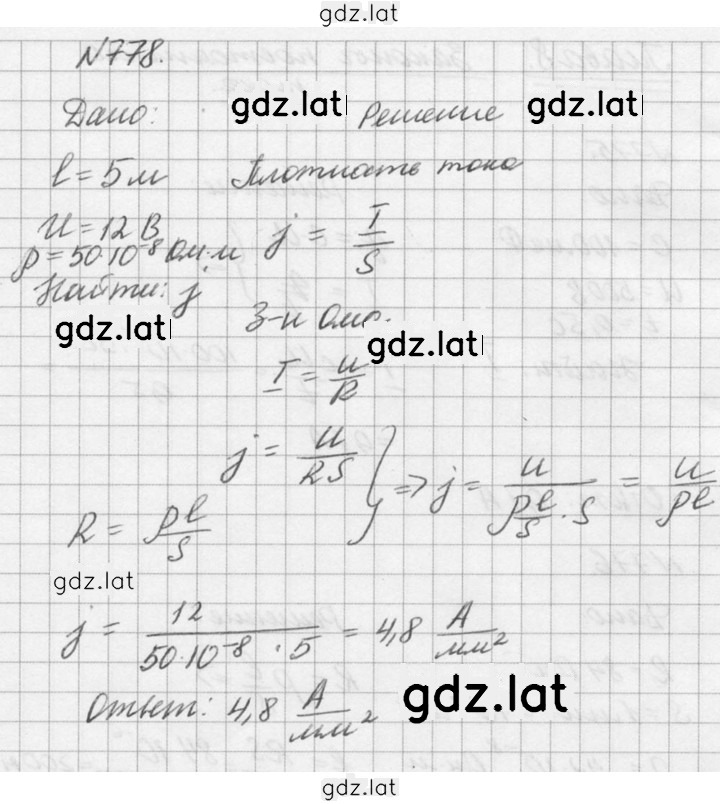 gdz.lat
№778.
Дано: gdz.lat Решение gdz.lat
l = 5 м Плотность тока
U = 12 В
ρ = 50·10⁻⁸ Ом·м j = I/S
Найти: j
gdz.lat З-н Ома. gdz.lat
I = U/R
j = U/(RS)
R = ρl/S } => j = U/((ρl/S)·S) = U/(ρl)
gdz.lat
j = 12/(50·10⁻⁸·5) = 4,8 А/мм²
Ответ: 4,8 А/мм² gdz.lat
gdz.lat